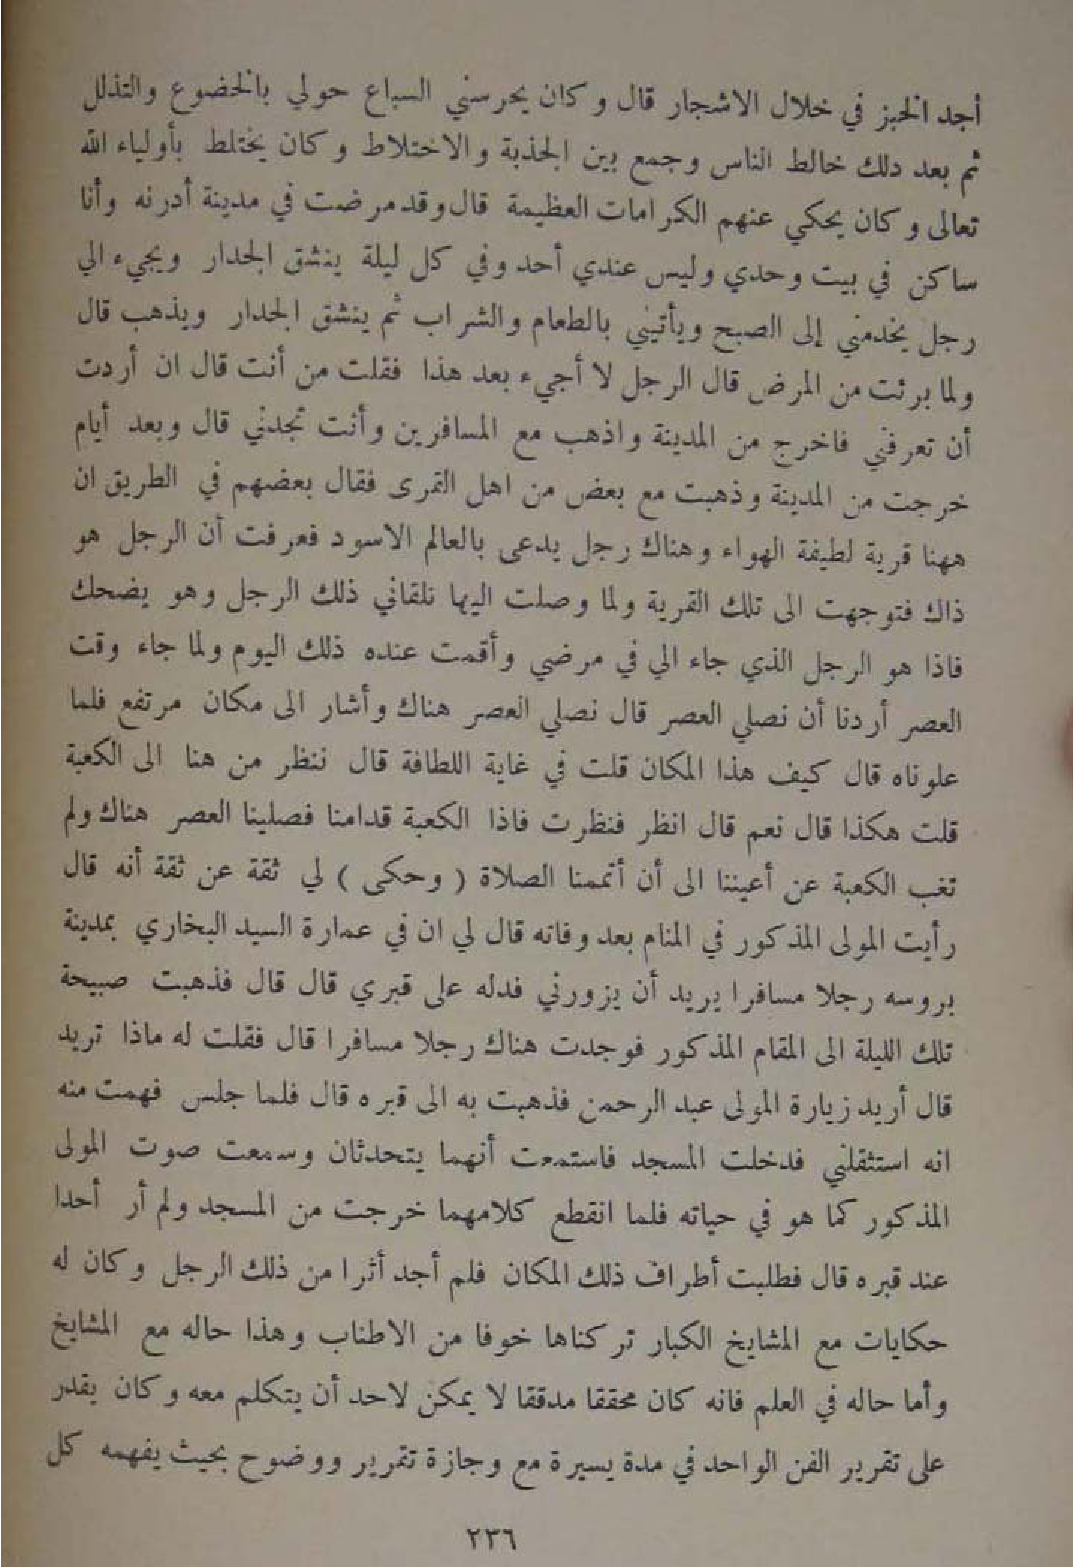 أجد الخبز في خلال الاشجار قال وكان يحرسني السباع حولي بالخضوع والتذلل
ثم بعد دلك خالط الناس وجمع بين الجذبة والاختلاط وكان يختلط بأولياء الله
تعالى وكان يحكي عنهم الكرامات العظيمة قال وقد مرضت في مدينة أدرنه وأنا
ساكن في بيت وحدي وليس عندي أحد وفي كل ليلة ينشق الجدار ويجيء الي
رجل يخدمني إلى الصبح ويأتيني بالطعام والشراب ثم ينشق الجدار ويذهب قال
ولما برئت من المرض قال الرجل لا أجيء بعد هذا فقلت من أنت قال ان أردت
أن تعرفني فاخرج من المدينة واذهب مع المسافرين وأنت تجدني قال وبعد أيام
خرجت من المدينة وذهبت مع بعض من اهل القرى فقال بعضهم في الطريق ان
ههنا قرية لطيفة الهواء وهناك رجل يدعى بالعالم الاسود فعرفت أن الرجل هو
ذاك فتوجهت الى تلك القرية ولما وصلت اليها تلقاني ذلك الرجل وهو يضحك
فاذا هو الرجل الذي جاء الي في مرضي وأقمت عنده ذلك اليوم ولما جاء وقت
العصر أردنا أن نصلي العصر قال نصلي العصر هناك وأشار الى مكان مرتفع فلما
علوناه قال كيف هذا المكان قلت في غاية اللطافة قال ننظر من هنا الى الكعبة
قلت هكذا قال نعم قال انظر فنظرت فاذا الكعبة قدامنا فصلينا العصر هناك ولم
تغب الكعبة عن أعيننا الى أن أتممنا الصلاة ( وحكى ) لي ثقة عن ثقة أنه قال
رأيت المولى المذكور في المنام بعد وفاته قال لي ان في عمارة السيد البخاري بمدينة
بروسه رجلا مسافرا يريد أن يزورني فدله على قبري قال قال فذهبت صبيحة
تلك الليلة الى المقام المذكور فوجدت هناك رجلا مسافرا قال فقلت له ماذا تريد
قال أريد زيارة المولى عبد الرحمن فذهبت به الى قبره قال فلما جلس فهمت منه
انه استثقلني فدخلت المسجد فاستمعت أنهما يتحدثان وسمعت صوت المولى
المذكور كما هو في حياته فلما انقطع كلامهما خرجت من المسجد ولم أر أحدا
عند قبره قال فطلبت أطراف ذلك المكان فلم أجد أثرا من ذلك الرجل وكان له
حكايات مع المشايخ الكبار تركناها خوفا من الاطناب وهذا حاله مع المشايخ
وأما حاله في العلم فانه كان محققا مدققا لا يمكن لاحد أن يتكلم معه وكان يقدر
على تقرير الفن الواحد في مدة يسيرة مع وجازة تقرير ووضوح بحيث يفهمه كل
٢٣٦